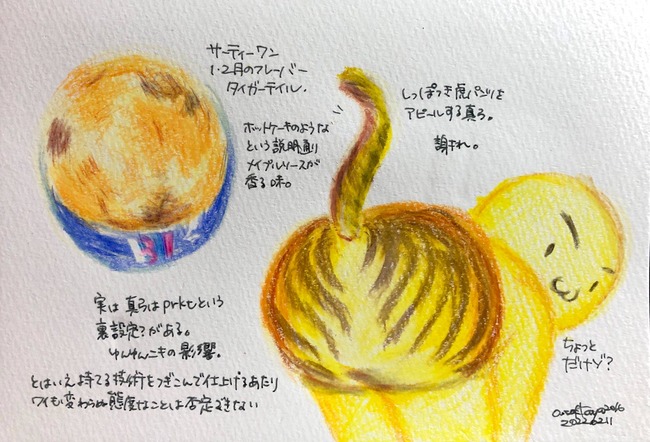 サーティーワン
1・2月のフレーバー
タイガーテイル.
ホットケーキのような
という説明通り
メイプルソースが
香る味。
しっぽつき虎パンツを
アピールする真ろ。
謝れ。
31
実は真ろはprktという
裏設定?がある。
ゆんゆんニキの影響。
とはいえ持てる技術をつぎこんで仕上げるあたり
ワイも変わらぬ態度なことは否定できない
ちょっと
だけゾ?
20220211